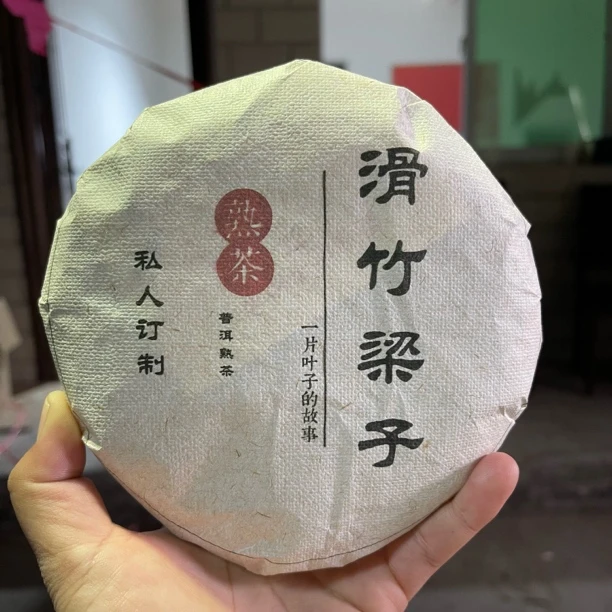 滑竹梁子
一片叶子的故事
熟茶
普洱熟茶
私人订制